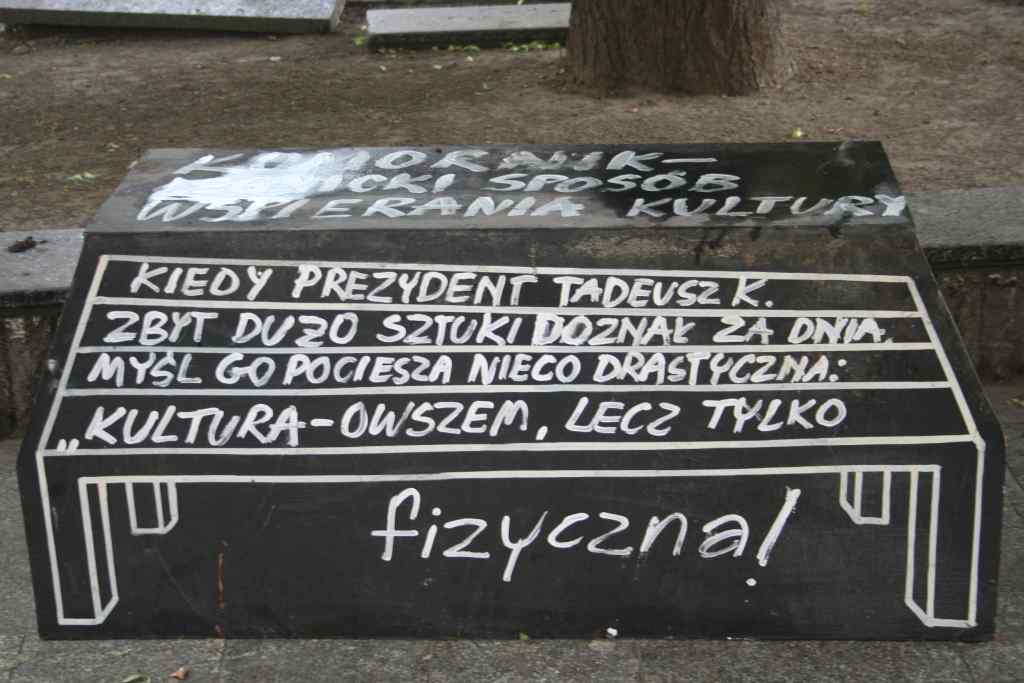 SPOSÓB
WSPIERANIA KULTURY
KIEDY PREZYDENT TADEUSZ K.
ZBYT DUŻO SZTUKI DOZNAŁ ZA DNIA,
MYŚL GO POCIESZA NIECO DRASTYCZNA:
„KULTURA-OWSZEM, LECZ TYLKO
fizyczna!